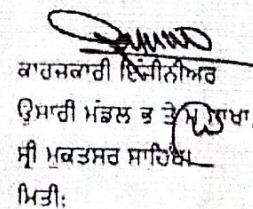 ਕਾਰਜਕਾਰੀ ਇੰਜੀਨੀਅਰ
ਉਸਾਰੀ ਮੰਡਲ ਭ ਤੇ ਮ ਸ਼ਾਖਾ
ਸ੍ਰੀ ਮੁਕਤਸਰ ਸਾਹਿਬ।
ਮਿਤੀ: